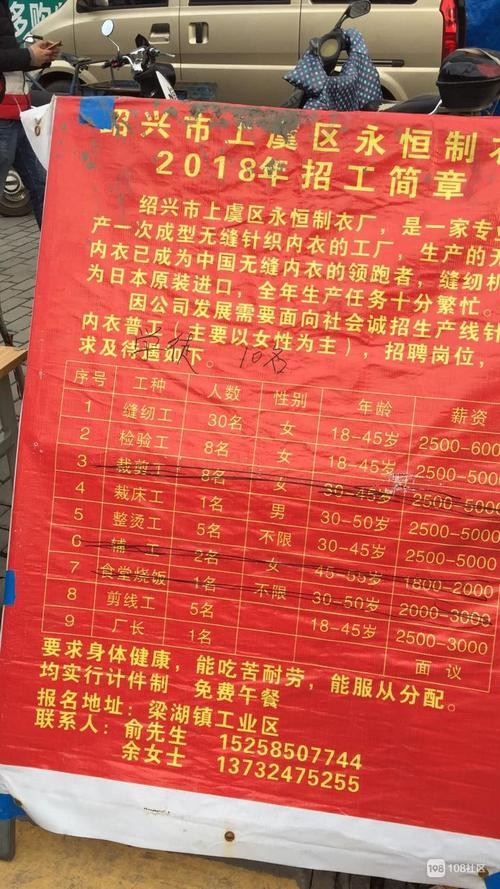 绍兴市上虞区永恒制衣
2018年招工简章
绍兴市上虞区永恒制衣厂，是一家专业
产一次成型无缝针织内衣的工厂，生产的无
内衣已成为中国无缝内衣的领跑者，缝纫机
为日本原装进口，全年生产任务十分繁忙。
因公司发展需要面向社会诚招生产线针
内衣普工（主要以女性为主），招聘岗位，
求及待遇如下。 学徒 10名
序号 工种 人数 性别 年龄 薪资
1 缝纫工 30名 女 18-45岁 2500-600
2 检验工 8名 女 18-45岁 2500-500
3 裁剪工 8名 女 30-45岁 2500-5000
4 裁床工 1名 男 30-50岁 2500-5000
5 整烫工 5名 不限 30-45岁 2500-5000
6 辅 工 2名 女 45-55岁 1800-2000
7 食堂烧饭 1名 不限 30-50岁 2000-3000
8 剪线工 5名 18-45岁 2500-3000
9 厂长 1名 面 议
要求身体健康，能吃苦耐劳，能服从分配。
均实行计件制 免费午餐
报名地址：梁湖镇工业区
联系人：俞先生 15258507744
余女士 13732475255
108社区